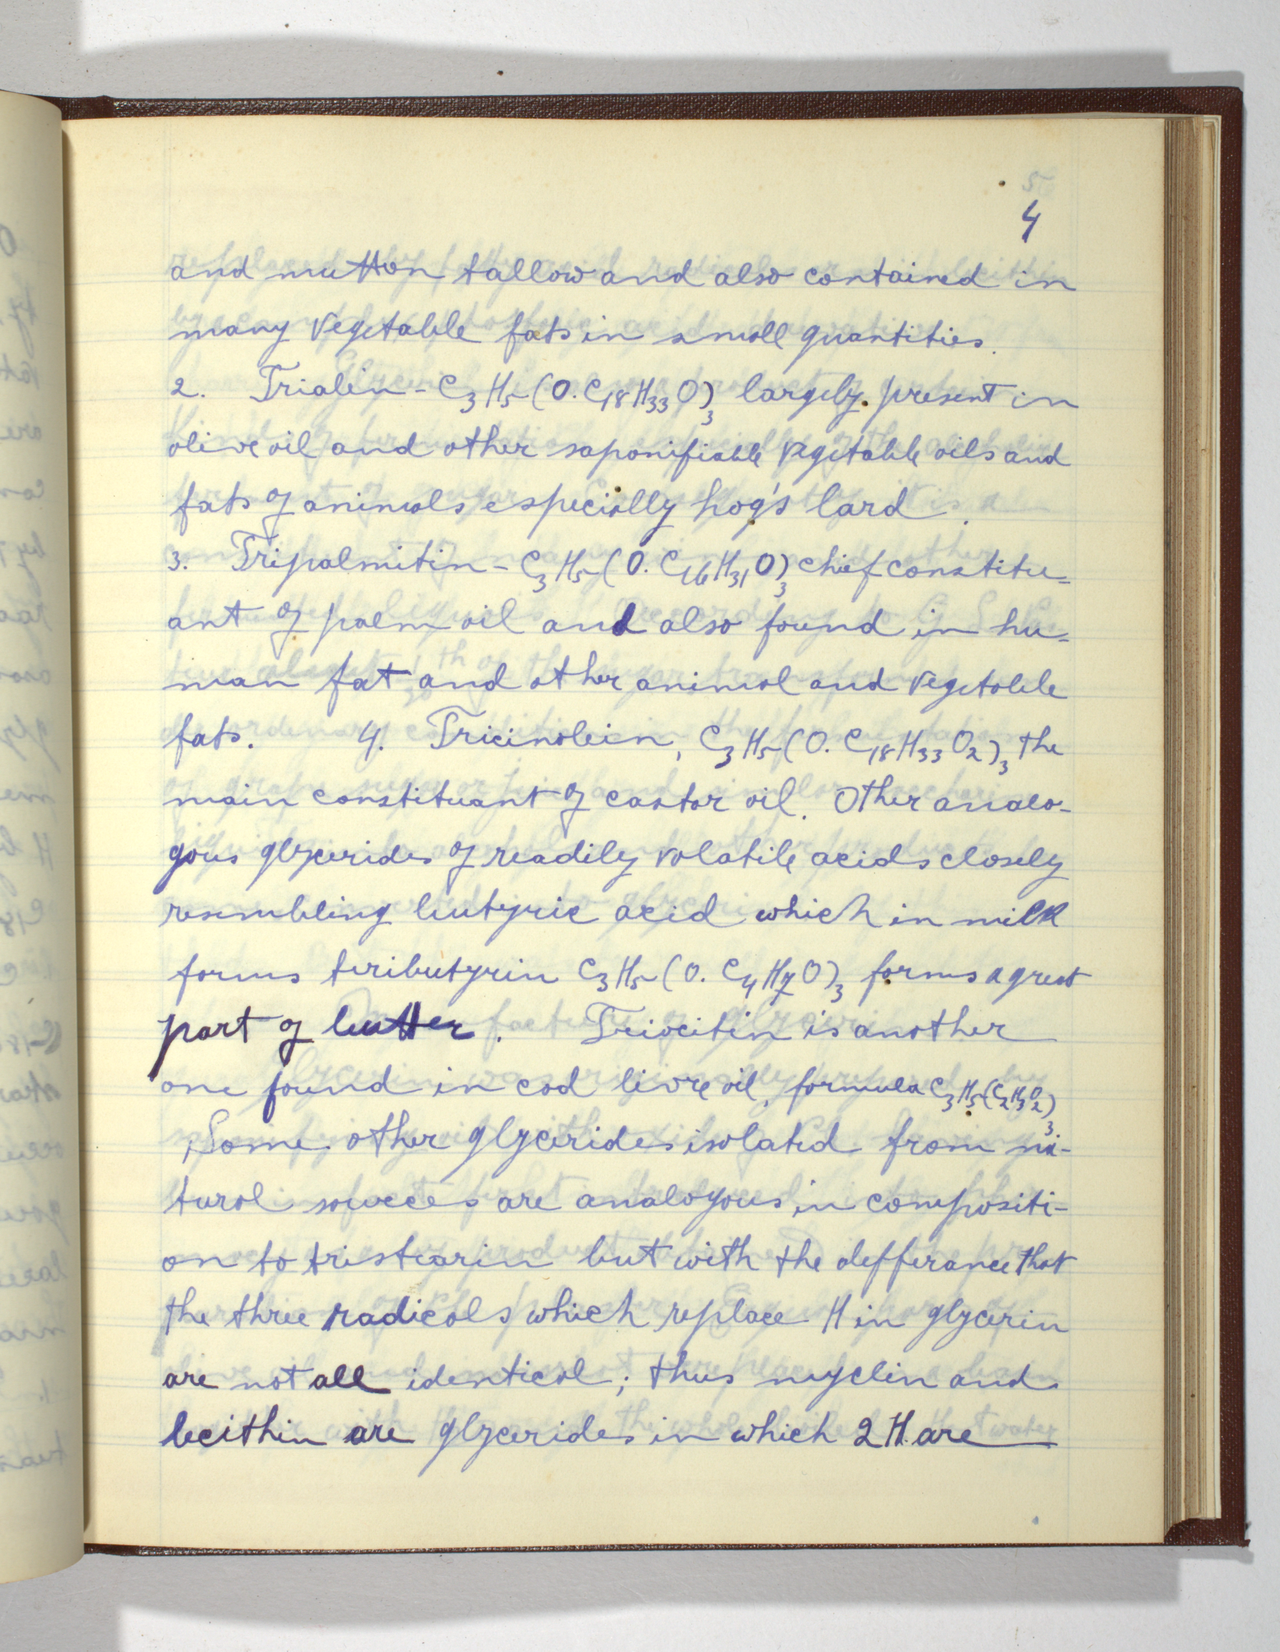 4
and mutton tallow and also contained in
many vegetable fats in small quantities.
2. Triolein - C₃H₅(O.C₁₈H₃₃O)₃ largely present in
olive oil and other saponifiable vegetable oils and
fats of animals especially hog's lard.
3. Tripalmitin - C₃H₅(O.C₁₆H₃₁O)₃ chief constitu=
ant of palm oil and also found in hu=
man fat and other animal and vegetable
fats. 4. Tricinolein, C₃H₅(O.C₁₈H₃₃O₂)₃ the
main constituant of castor oil. Other analo-
gous glycerides of readily volatile acids closely
resembling butyric acid which in milk
forms tributyrin C₃H₅(O.C₄H₇O)₃ forms a great
part of butter. Triocitin is another
one found in cod livre oil, formula C₃H₅(C₂H₃O₂)₃
Some other glycerides isolated from na-
tural sources are analogous in compositi-
on to tristearin but with the defferance that
the three radicals which replace H in glycerin
are not all identical; thus myclin and
lecithin are glycerides in which 2H. are